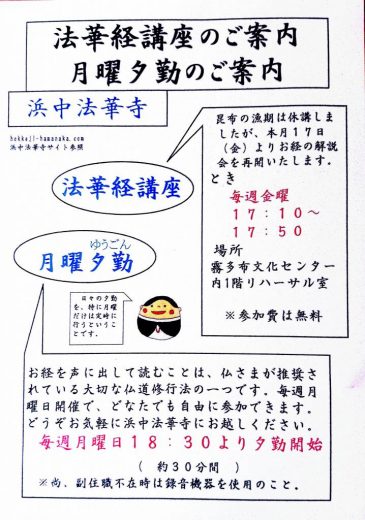 法華経講座のご案内
月曜夕勤のご案内
浜中法華寺
hokkeji-hamanaka.com
浜中法華寺サイト参照
法華経講座
昆布の漁期は休講しま
したが、本月17日
(金)よりお経の解説
会を再開いたします。
とき
毎週金曜
17:10~
17:50
場所
霧多布文化センター
内1階リハーサル室
※参加費は無料
ゆうごん
月曜夕勤
日々の夕勤
を、特に月曜
だけは定時に
行うというこ
とです。
お経を声に出して読むことは、仏さまが推奨さ
れている大切な仏道修行法の一つです。毎週月
曜日開催で、どなたでも自由に参加できます。
どうぞお気軽に浜中法華寺にお越しください。
毎週月曜日18:30より夕勤開始
(約30分間)
※尚、副住職不在時は録音機器を使用のこと。